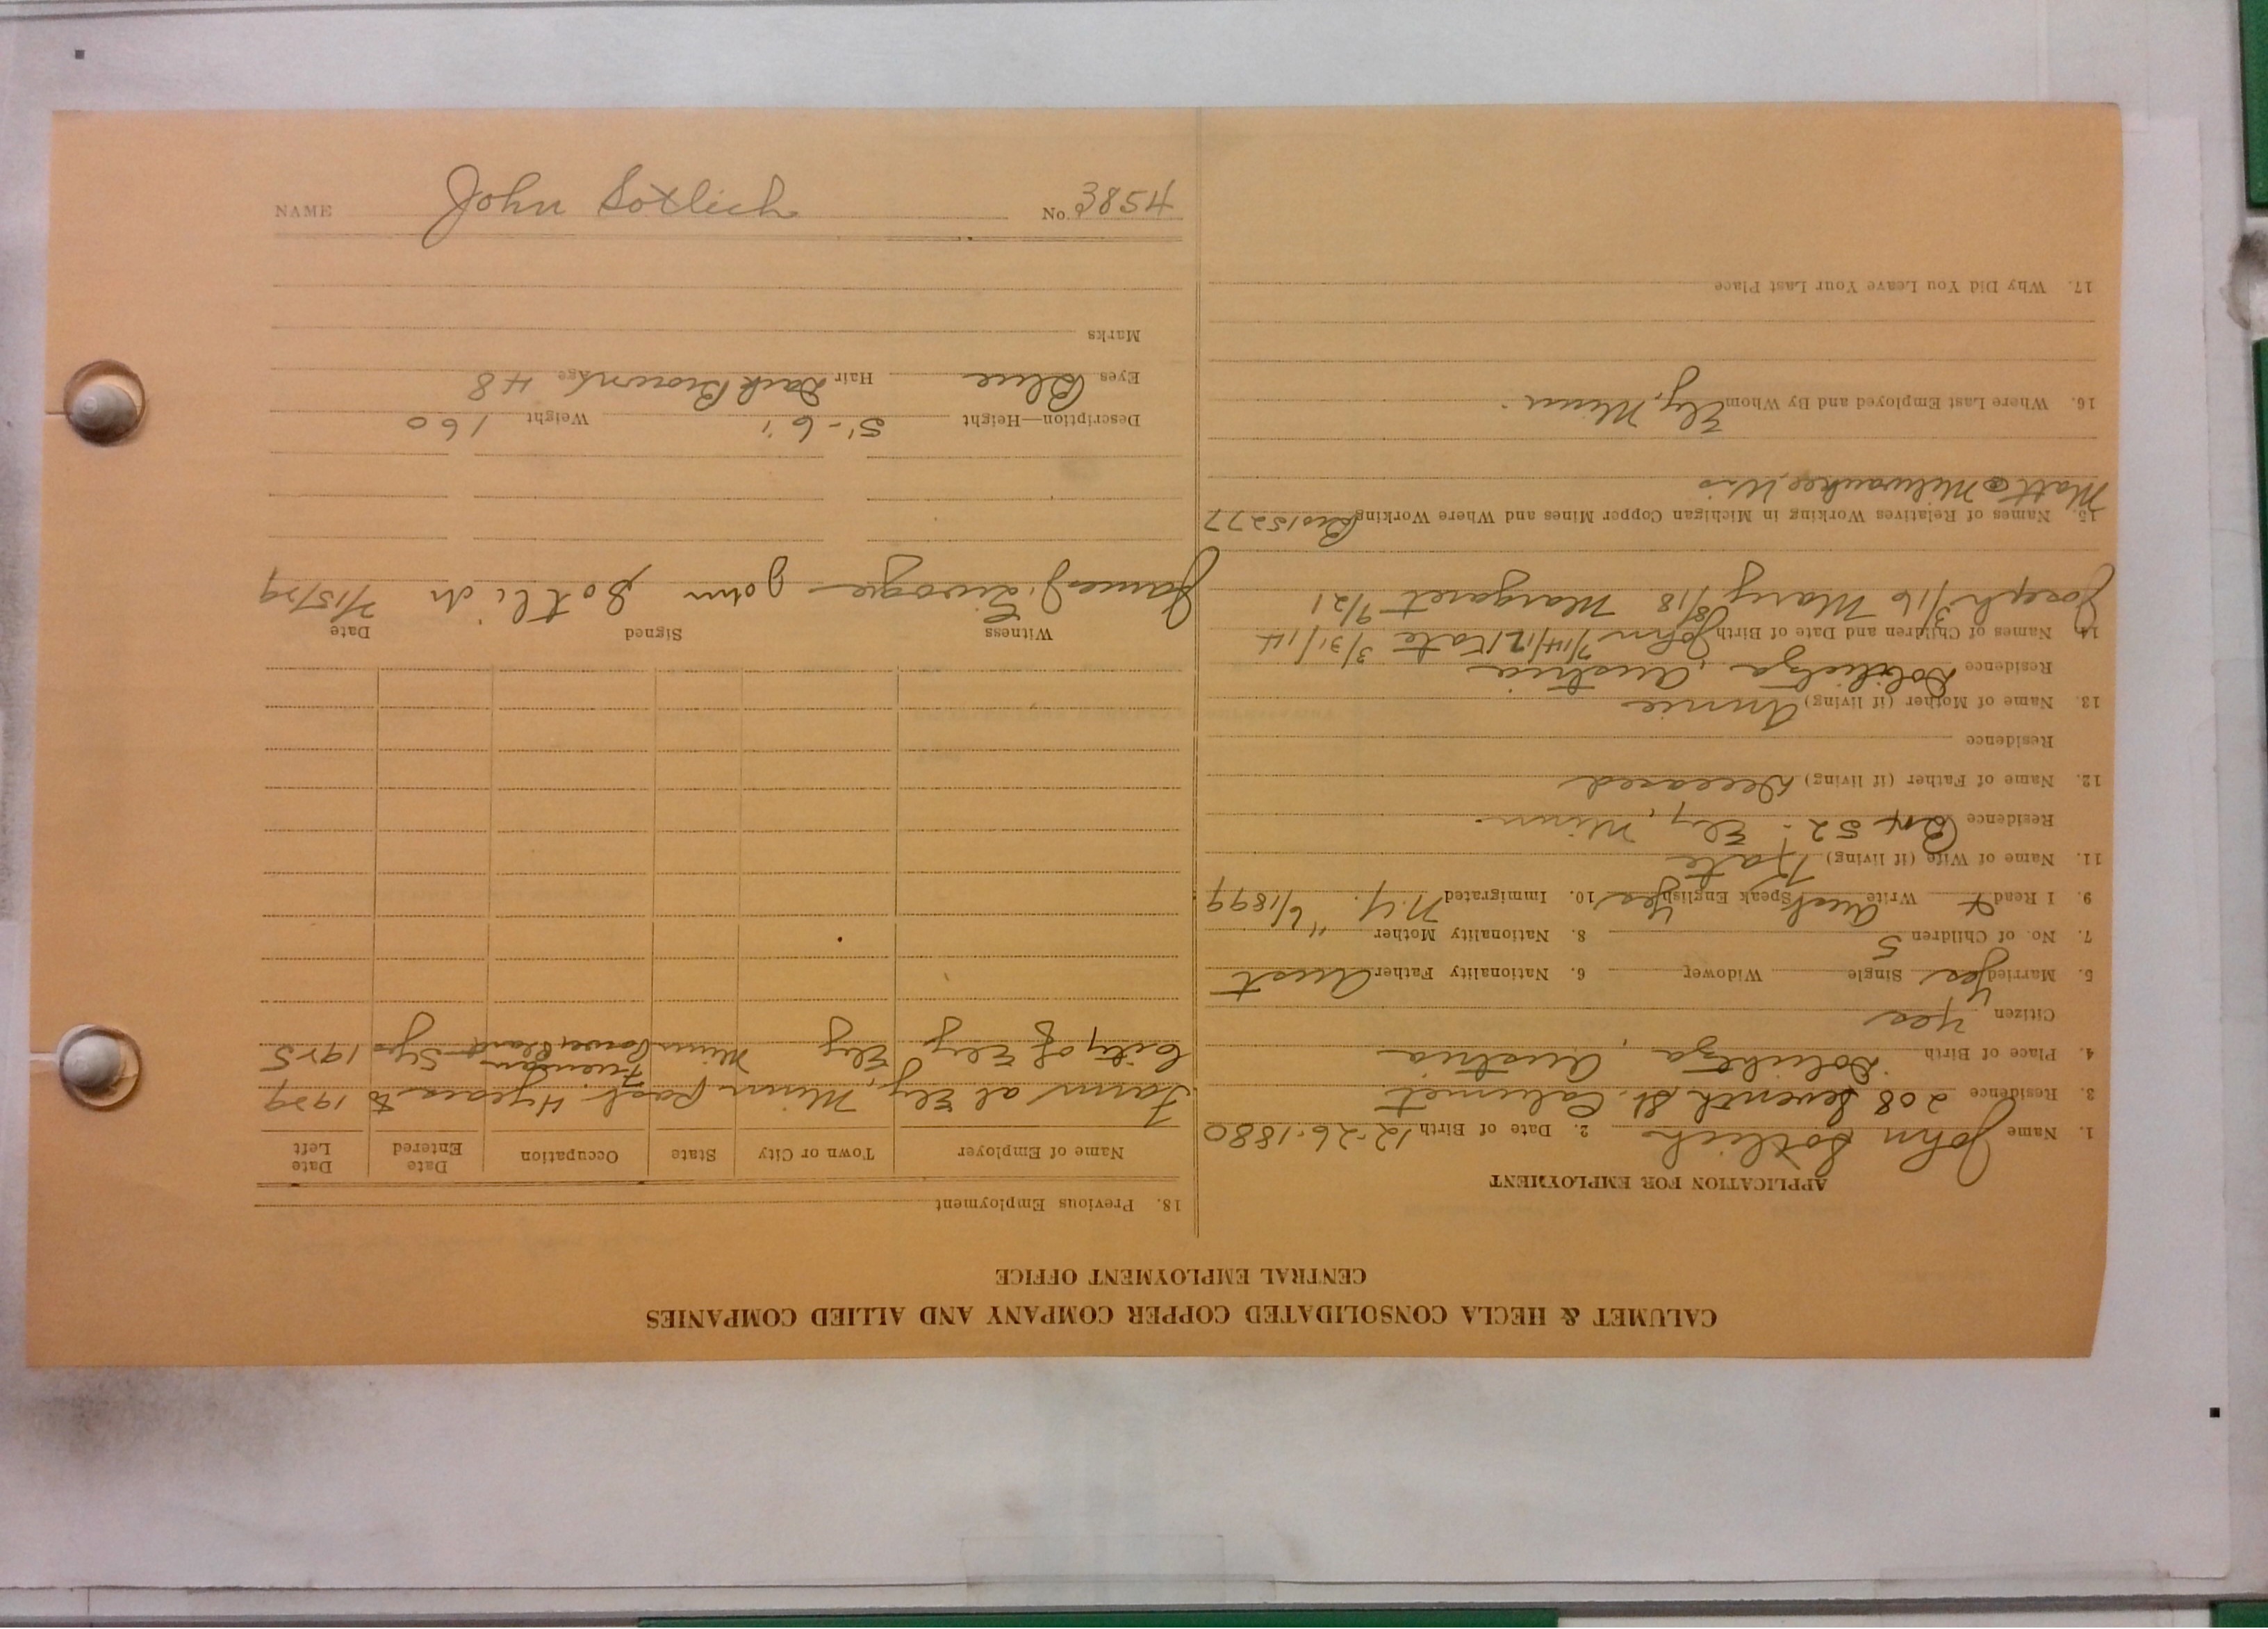 NAME John Sotlich No. 3854
CALUMET & HECLA CONSOLIDATED COPPER COMPANY AND ALLIED COMPANIES
CENTRAL EMPLOYMENT OFFICE
APPLICATION FOR EMPLOYMENT
1. Name John Sotlich 2. Date of Birth 12-26-1880
3. Residence 208 Seventh St. Calumet
4. Place of Birth Austria
Citizen Yes
5. Married Yes Single Widower 6. Nationality Father Aust
7. No. of Children 5 8. Nationality Mother "
9. I Read Write Aust Speak English Yes 10. Immigrated N.Y. 6/1899
11. Name of Wife (if living) Kate
Residence Box 52. Ely, Minn.
12. Name of Father (if living) Deceased
Residence
13. Name of Mother (if living) Annie
Residence Austria
14. Names of Children and Date of Birth John 7/14/12 Kate 3/31/14
Joseph 3/16 Mary 8/18 Margaret 9/21
15. Names of Relatives Working in Michigan Copper Mines and Where Working
Matt Milwaukee, Wis
16. Where Last Employed and By Whom Ely, Minn.
17. Why Did You Leave Your Last Place
18. Previous Employment
Name of Employer Town or City State Occupation Date Entered Date Left
Farm at Ely, Minn past 4 years to 1929
City of Ely Ely Minn Fireman Power Plant 5 yrs 1925
Witness Signed Date
James John Sotlich 7/15/29
Description—Height 5'-6" Weight 160
Eyes Blue Hair Dark Brown Age 48
Marks